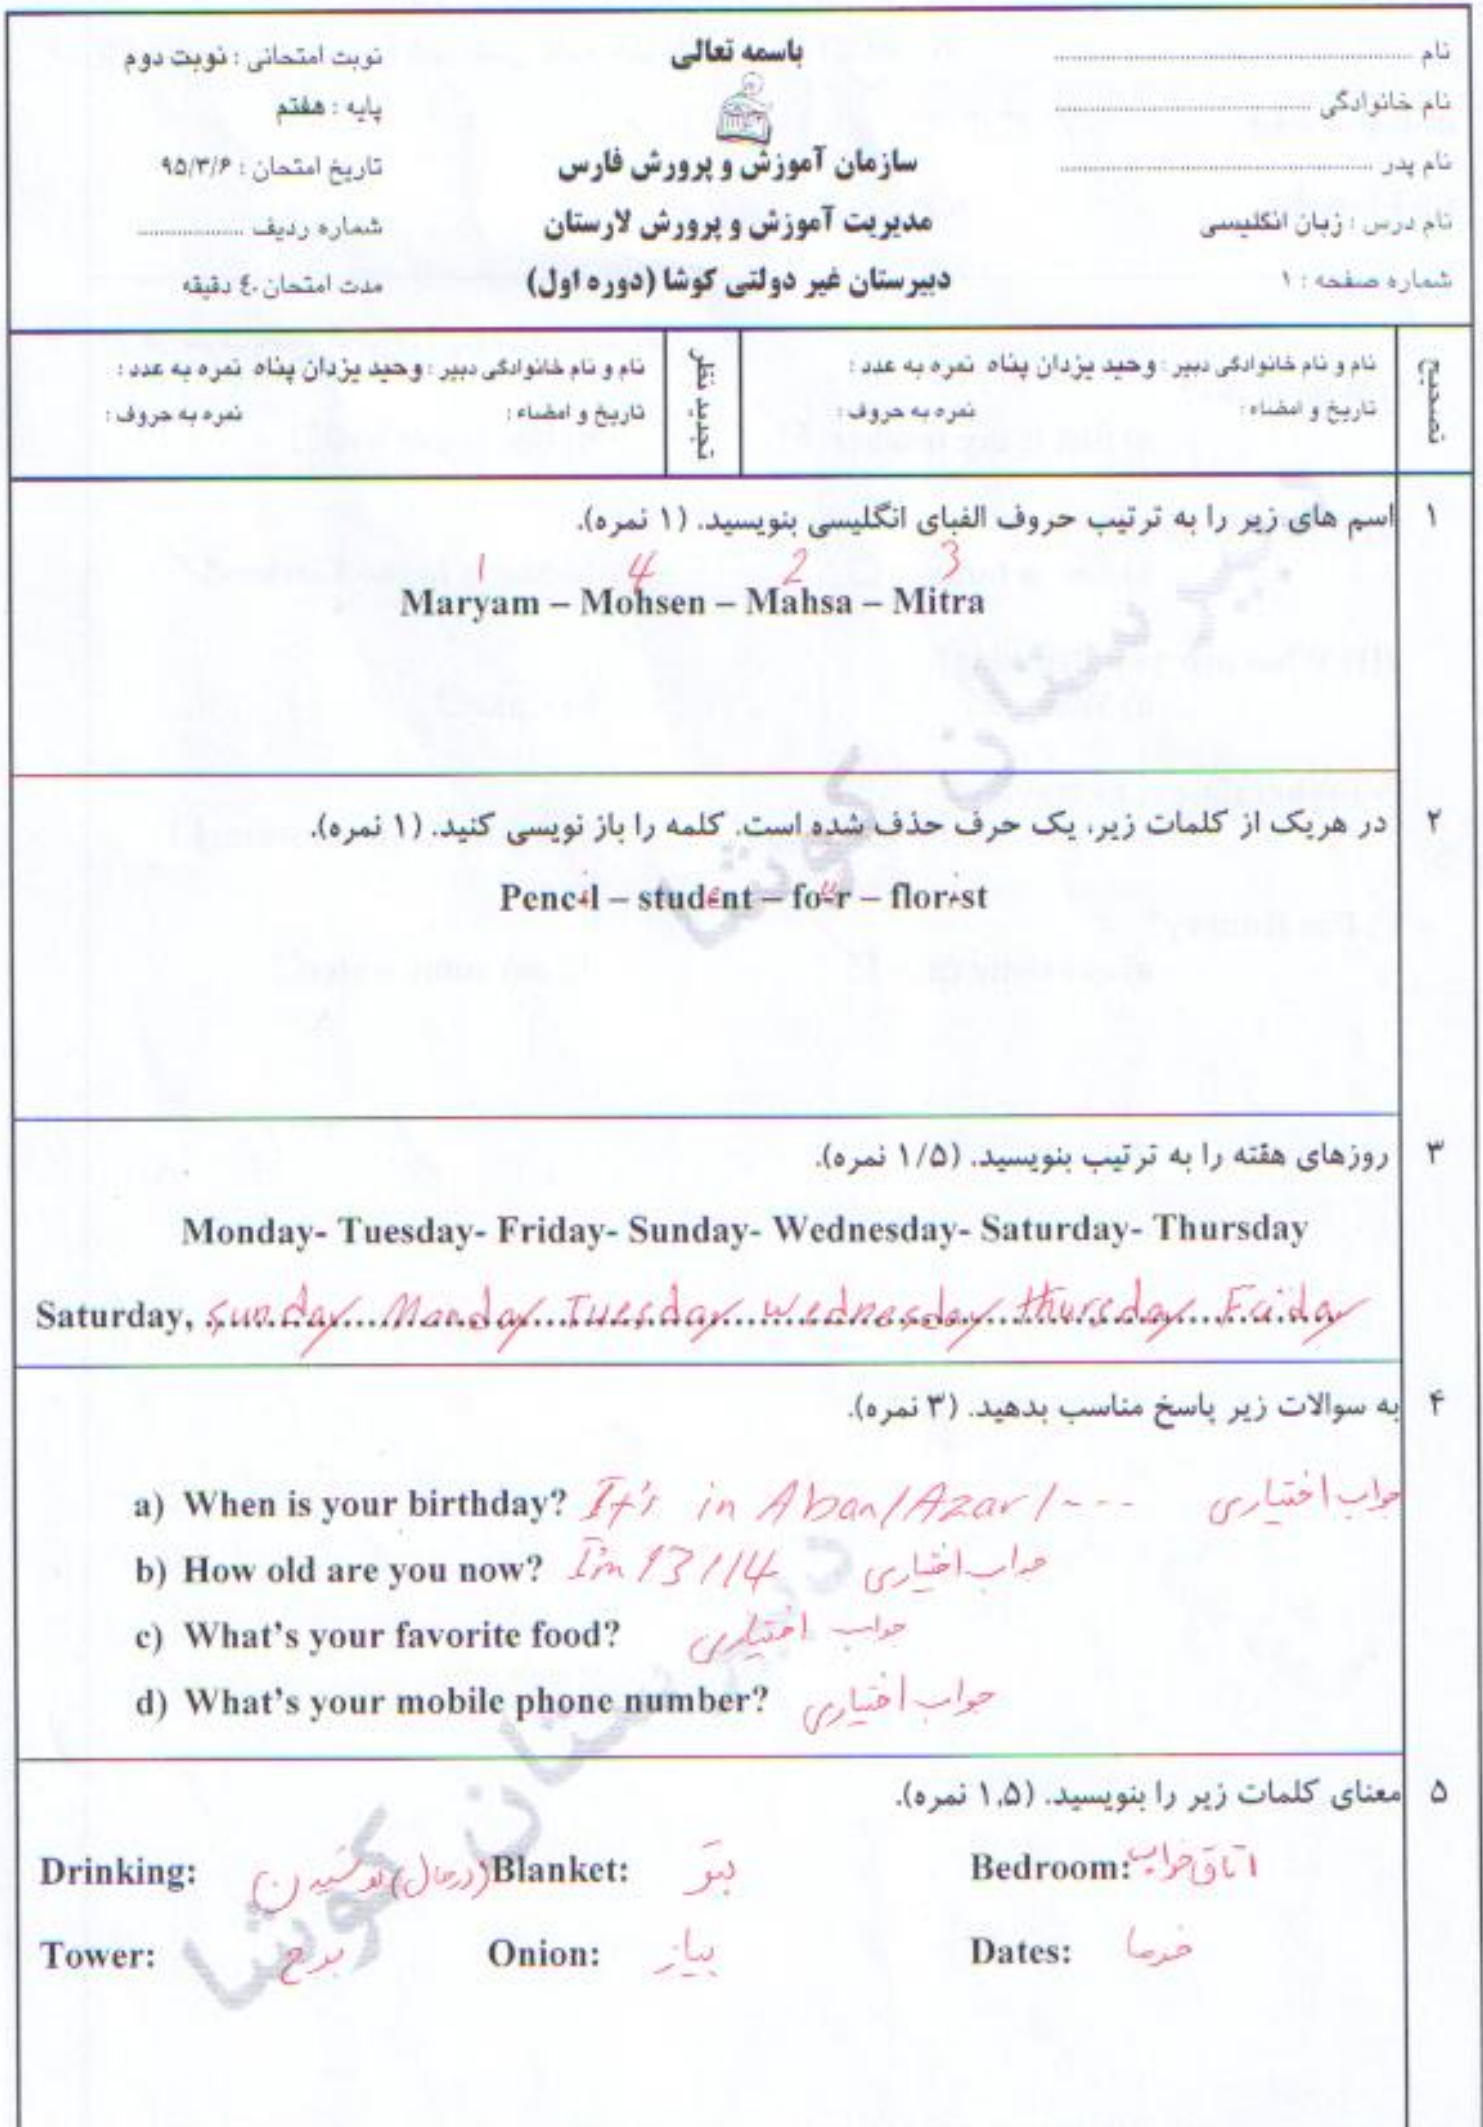 باسمه تعالی
نام
نام خانوادگی
نام پدر
نام درس : زبان انگلیسی
شماره صفحه : ۱
سازمان آموزش و پرورش فارس
مدیریت آموزش و پرورش لارستان
دبیرستان غیر دولتی کوشا (دوره اول)
نوبت امتحانی : نوبت دوم
پایه : هفتم
تاریخ امتحان : ۹۵/۳/۶
شماره ردیف
مدت امتحان ۴۰ دقیقه
تصحیح
نام و نام خانوادگی دبیر : وحید یزدان پناه نمره به عدد :
تاریخ و امضاء : نمره به حروف :
تجدید نظر
نام و نام خانوادگی دبیر : وحید یزدان پناه نمره به عدد :
تاریخ و امضاء : نمره به حروف :
۱ اسم های زیر را به ترتیب حروف الفبای انگلیسی بنویسید. (۱ نمره).
1 4 2 3
Maryam – Mohsen – Mahsa – Mitra
۲ در هریک از کلمات زیر، یک حرف حذف شده است. کلمه را باز نویسی کنید. (۱ نمره).
Pencil – student – four – florist
۳ روزهای هفته را به ترتیب بنویسید. (۱/۵ نمره).
Monday- Tuesday- Friday- Sunday- Wednesday- Saturday- Thursday
Saturday, Sunday Monday Tuesday Wednesday Thursday Friday
۴ به سوالات زیر پاسخ مناسب بدهید. (۳ نمره).
a) When is your birthday? It's in Aban/Azar/--- جواب اختیاری
b) How old are you now? I'm 13/14 جواب اختیاری
c) What's your favorite food? جواب اختیاری
d) What's your mobile phone number? جواب اختیاری
۵ معنای کلمات زیر را بنویسید. (۱,۵ نمره).
Drinking: (درحال) نوشیدن Blanket: پتو Bedroom: اتاق خواب
Tower: برج Onion: پیاز Dates: خرما
دبیرستان کوشا
دبیرستان کوشا